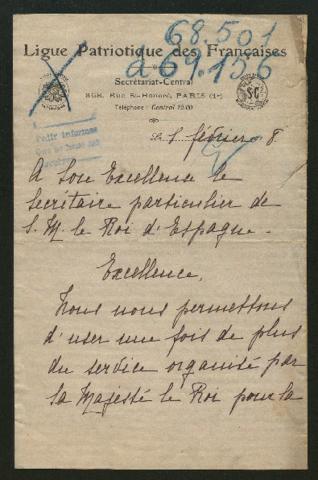 68.501
à 69.156
Ligue Patriotique des Françaises
Secrétariat-Central
368, Rue St-Honoré, PARIS (1er)
Téléphone : Central
le 1 février 8
A Son Excellence le
Secrétaire particulier de
S. M. le Roi d'Espagne.
Excellence,
Nous nous permettons
d'user une fois de plus
du service organisé par
Sa Majesté le Roi pour la